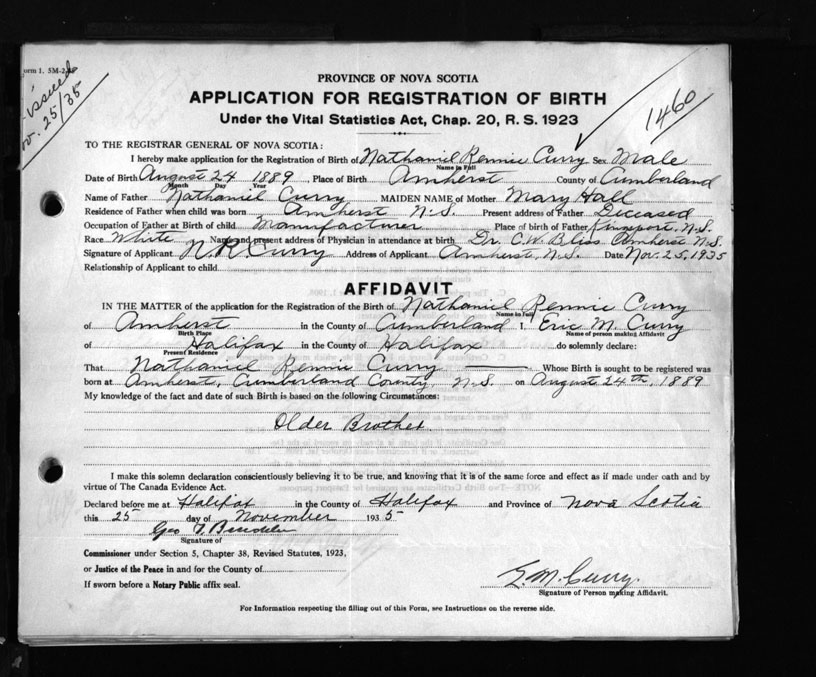 orm 1. 5M-2
issued
ov. 25/35
PROVINCE OF NOVA SCOTIA
APPLICATION FOR REGISTRATION OF BIRTH
Under the Vital Statistics Act, Chap. 20, R. S. 1923
1460
TO THE REGISTRAR GENERAL OF NOVA SCOTIA:
I hereby make application for the Registration of Birth of Nathaniel Rennie Curry Sex Male
Name in Full
Date of Birth August 24 1889, Place of Birth Amherst County of Cumberland
Month Day Year
Name of Father Nathaniel Curry MAIDEN NAME of Mother Mary Hall
Residence of Father when child was born Amherst N.S. Present address of Father Deceased
Occupation of Father at Birth of child Manufacturer Place of birth of Father Kingsport, N.S.
Race White Name and present address of Physician in attendance at birth Dr. C. W. Bliss Amherst N.S.
Signature of Applicant N R Curry Address of Applicant Amherst, N.S. Date Nov. 25, 1935
Relationship of Applicant to child
AFFIDAVIT
IN THE MATTER of the application for the Registration of the Birth of Nathaniel Rennie Curry
Name in Full
of Amherst in the County of Cumberland I, Eric M. Curry
Birth Place Name of person making Affidavit
of Halifax in the County of Halifax do solemnly declare:
Present Residence
That Nathaniel Rennie Curry Whose Birth is sought to be registered was
born at Amherst, Cumberland County N.S. on August 24th, 1889
My knowledge of the fact and date of such Birth is based on the following Circumstances:
Older Brother
I make this solemn declaration conscientiously believing it to be true, and knowing that it is of the same force and effect as if made under oath and by
virtue of The Canada Evidence Act.
Declared before me at Halifax in the County of Halifax and Province of Nova Scotia
this 25 day of November 1935
Geo
Signature of
Commissioner under Section 5, Chapter 38, Revised Statutes, 1923,
or Justice of the Peace in and for the County of
If sworn before a Notary Public affix seal.
E. M. Curry.
Signature of Person making Affidavit.
For Information respecting the filling out of this Form, see Instructions on the reverse side.